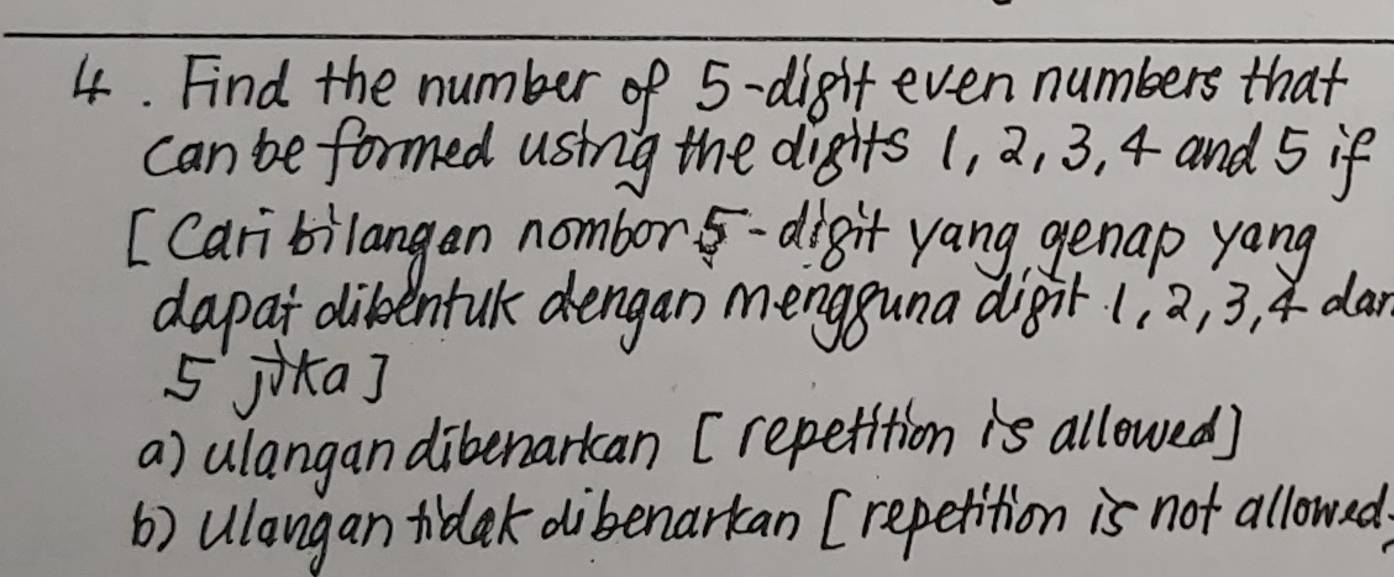 4. Find the number of 5-digit even numbers that
can be formed using the digits 1, 2, 3, 4 and 5 if
[Cari bilangan nombor 5-digit yang genap yang
dapat dibentuk dengan mengguna digit 1, 2, 3, 4 dan
5 jika]
a) ulangan dibenarkan [repetition is allowed]
b) Ulangan tidak dibenarkan [repetition is not allowed]